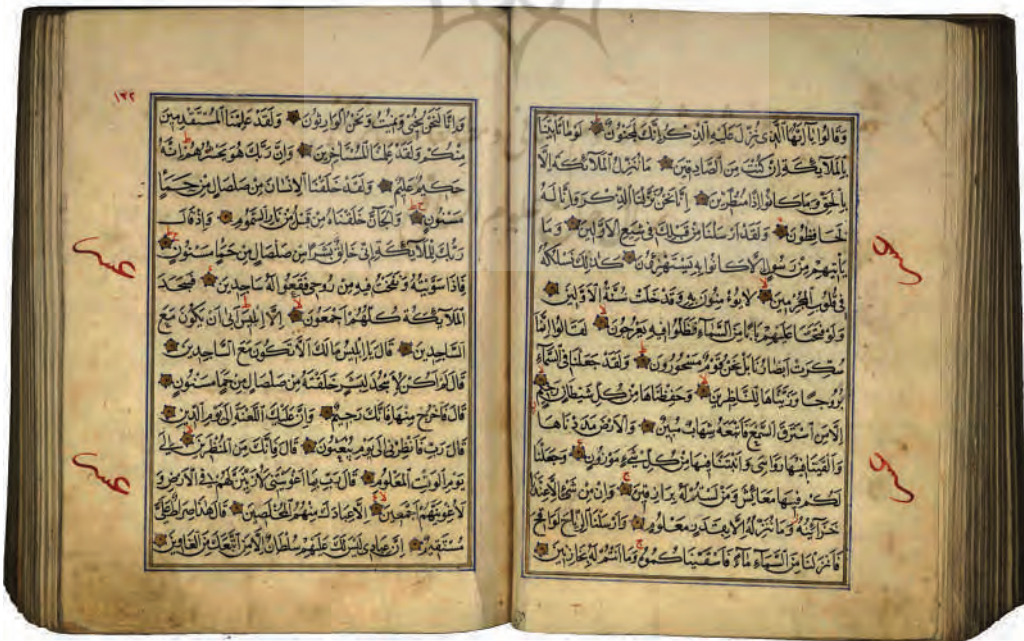 وَقَالُوا يَا أَيُّهَا الَّذِي نُزِّلَ عَلَيْهِ الذِّكْرُ إِنَّكَ لَمَجْنُونٌ لَوْ مَا تَأْتِينَا
بِالْمَلَآئِكَةِ إِنْ كُنْتَ مِنَ الصَّادِقِينَ مَا نُنَزِّلُ الْمَلَآئِكَةَ إِلَّا
بِالْحَقِّ وَمَا كَانُوا إِذًا مُنْظَرِينَ إِنَّا نَحْنُ نَزَّلْنَا الذِّكْرَ وَإِنَّا لَهُ
لَحَافِظُونَ وَلَقَدْ أَرْسَلْنَا مِنْ قَبْلِكَ فِي شِيَعِ الْأَوَّلِينَ وَمَا
يَأْتِيهِمْ مِنْ رَسُولٍ إِلَّا كَانُوا بِهِ يَسْتَهْزِؤُنَ كَذَلِكَ نَسْلُكُهُ
فِي قُلُوبِ الْمُجْرِمِينَ لَا يُؤْمِنُونَ بِهِ وَقَدْ خَلَتْ سُنَّةُ الْأَوَّلِينَ
وَلَوْ فَتَحْنَا عَلَيْهِمْ بَابًا مِنَ السَّمَآءِ فَظَلُّوا فِيهِ يَعْرُجُونَ لَقَالُوا إِنَّمَا
سُكِّرَتْ أَبْصَارُنَا بَلْ نَحْنُ قَوْمٌ مَسْحُورُونَ وَلَقَدْ جَعَلْنَا فِي السَّمَآءِ
بُرُوجًا وَزَيَّنَّاهَا لِلنَّاظِرِينَ وَحَفِظْنَاهَا مِنْ كُلِّ شَيْطَانٍ رَجِيمٍ
إِلَّا مَنِ اسْتَرَقَ السَّمْعَ فَأَتْبَعَهُ شِهَابٌ مُبِينٌ وَالْأَرْضَ مَدَدْنَاهَا
وَأَلْقَيْنَا فِيهَا رَوَاسِيَ وَأَنْبَتْنَا فِيهَا مِنْ كُلِّ شَيْءٍ مَوْزُونٍ وَجَعَلْنَا
لَكُمْ فِيهَا مَعَايِشَ وَمَنْ لَسْتُمْ لَهُ بِرَازِقِينَ وَإِنْ مِنْ شَيْءٍ إِلَّا عِنْدَنَا
خَزَآئِنُهُ وَمَا نُنَزِّلُهُ إِلَّا بِقَدَرٍ مَعْلُومٍ وَأَرْسَلْنَا الرِّيَاحَ لَوَاقِحَ
فَأَنْزَلْنَا مِنَ السَّمَآءِ مَآءً فَأَسْقَيْنَاكُمُوهُ وَمَا أَنْتُمْ لَهُ بِخَازِنِينَ
١٦٢
وَإِنَّا لَنَحْنُ نُحْيِي وَنُمِيتُ وَنَحْنُ الْوَارِثُونَ وَلَقَدْ عَلِمْنَا الْمُسْتَقْدِمِينَ
مِنْكُمْ وَلَقَدْ عَلِمْنَا الْمُسْتَأْخِرِينَ وَإِنَّ رَبَّكَ هُوَ يَحْشُرُهُمْ إِنَّهُ
حَكِيمٌ عَلِيمٌ وَلَقَدْ خَلَقْنَا الْإِنْسَانَ مِنْ صَلْصَالٍ مِنْ حَمَإٍ
مَسْنُونٍ وَالْجَآنَّ خَلَقْنَاهُ مِنْ قَبْلُ مِنْ نَارِ السَّمُومِ وَإِذْ قَالَ
رَبُّكَ لِلْمَلَآئِكَةِ إِنِّي خَالِقٌ بَشَرًا مِنْ صَلْصَالٍ مِنْ حَمَإٍ مَسْنُونٍ
فَإِذَا سَوَّيْتُهُ وَنَفَخْتُ فِيهِ مِنْ رُوحِي فَقَعُوا لَهُ سَاجِدِينَ فَسَجَدَ
الْمَلَآئِكَةُ كُلُّهُمْ أَجْمَعُونَ إِلَّا إِبْلِيسَ أَبَى أَنْ يَكُونَ مَعَ
السَّاجِدِينَ قَالَ يَا إِبْلِيسُ مَا لَكَ أَلَّا تَكُونَ مَعَ السَّاجِدِينَ
قَالَ لَمْ أَكُنْ لِأَسْجُدَ لِبَشَرٍ خَلَقْتَهُ مِنْ صَلْصَالٍ مِنْ حَمَإٍ مَسْنُونٍ
قَالَ فَاخْرُجْ مِنْهَا فَإِنَّكَ رَجِيمٌ وَإِنَّ عَلَيْكَ اللَّعْنَةَ إِلَى يَوْمِ الدِّينِ
قَالَ رَبِّ فَأَنْظِرْنِي إِلَى يَوْمِ يُبْعَثُونَ قَالَ فَإِنَّكَ مِنَ الْمُنْظَرِينَ إِلَى
يَوْمِ الْوَقْتِ الْمَعْلُومِ قَالَ رَبِّ بِمَا أَغْوَيْتَنِي لَأُزَيِّنَنَّ لَهُمْ فِي الْأَرْضِ وَ
لَأُغْوِيَنَّهُمْ أَجْمَعِينَ إِلَّا عِبَادَكَ مِنْهُمُ الْمُخْلَصِينَ قَالَ هَذَا صِرَاطٌ عَلَيَّ
مُسْتَقِيمٌ إِنَّ عِبَادِي لَيْسَ لَكَ عَلَيْهِمْ سُلْطَانٌ إِلَّا مَنِ اتَّبَعَكَ مِنَ الْغَاوِينَ